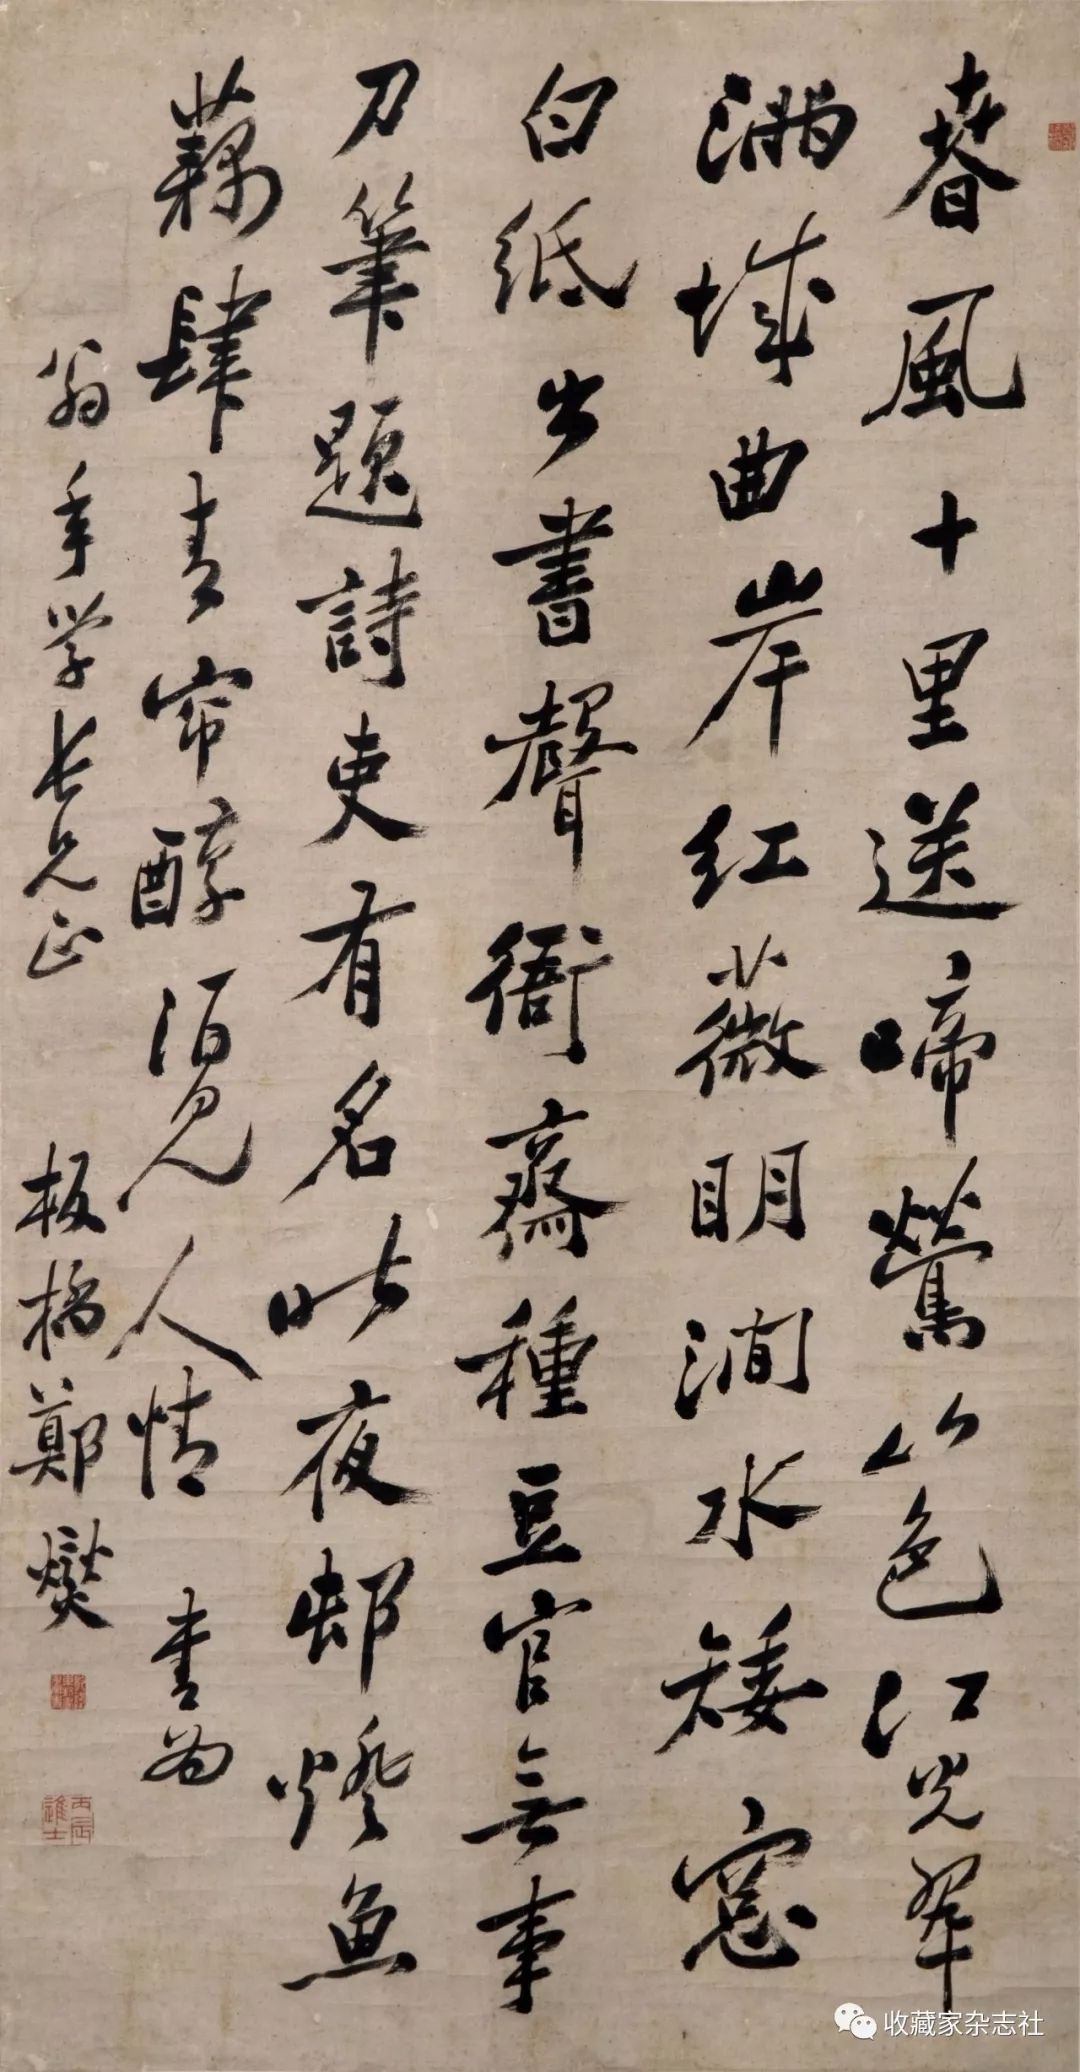 春風十里送啼鶯山色江光翠
滿城曲岸紅薇明澗水矮窓
白紙出書聲衙齋種豆官無事
刀筆題詩吏有名昨夜邨燈魚
藕肆青帘醇酒見人情 書為
翁年學長兄正 板橋鄭燮
丙辰進士
收藏家杂志社